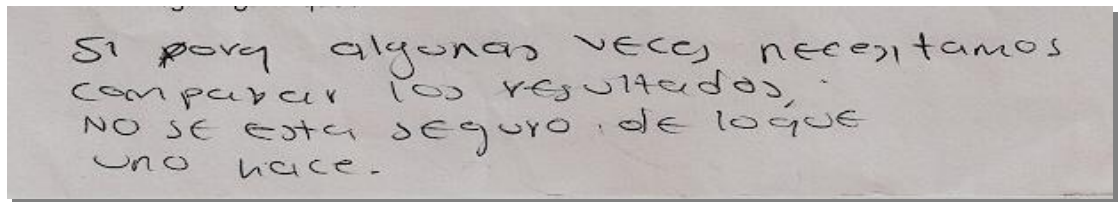 Si porq algunas veces necesitamos
comparar los resultados,
NO se esta seguro de loque
uno hace.